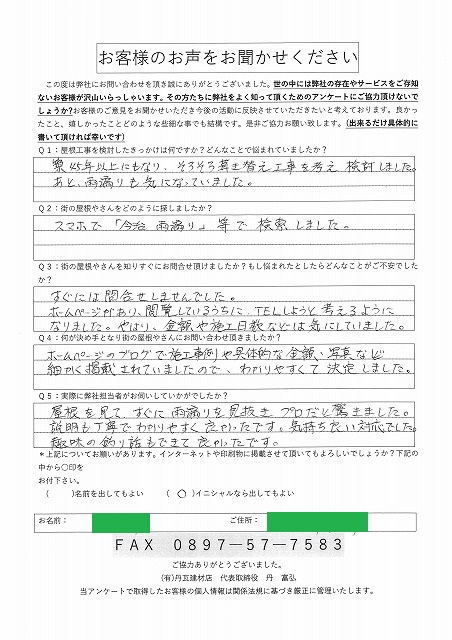 お客様のお声をお聞かせください
この度は弊社にお問い合わせを頂き誠にありがとうございました。世の中には弊社の存在やサービスをご存知
ないお客様が沢山いらっしゃいます。その方たちに弊社をよく知って頂くためのアンケートにご協力頂けないで
しょうか？お客様のご意見をお聞かせいただき今後の活動に反映させていただきたいと考えております。良かっ
たこと、嬉しかったことどのような些細な事でも結構です。是非ご協力お願い致します。（出来るだけ具体的に
書いて頂ければ幸いです）
Q１：屋根工事を検討したきっかけは何ですか？どんなことで悩まれていましたか？
築45年以上にもなり、そろそろ葺き替え工事を考え 検討しました。
あと、雨漏りも気になっていました。
Q２：街の屋根やさんをどのように探しましたか？
スマホで「今治 雨漏り」等で検索しました。
Q３：街の屋根やさんを知りすぐにお問合せ頂けましたか？もし悩まれたとしたらどんなことがご不安でした
か？
すぐには問合せしませんでした。
ホームページがあり、閲覧しているうちに、TELしようと考えるように
なりました。やはり、金額や施工日数などは気にしていました。
Q４：何が決め手となり街の屋根やさんにお問い合わせ頂きましたか？
ホームページのブログで施工事例や具体的な金額、写真など
細かく掲載されていましたので、わかりやすくて決定しました。
Q５：実際に弊社担当者がお伺いしていかがでしたか？
屋根を見て、すぐに雨漏りを見抜き プロだと驚きました。
説明も丁寧でわかりやすく良かったです。気持ち良い対応でした。
趣味の釣り話もできて良かったです。
＊上記についてお願いがあります。インターネットや印刷物に掲載させて頂いてもよろしいでしょうか？下記の
中から〇印を
お付下さい。
（　　）名前を出してもよい　　（　〇　）イニシャルなら出してもよい
お名前：　　ご住所：
ＦＡＸ　０８９７－５７－７５８３
ご協力ありがとうございました。
(有)丹瓦建材店　代表取締役　丹　富弘
当アンケートで取得したお客様の個人情報は関係法規に基づき厳正に管理いたします。